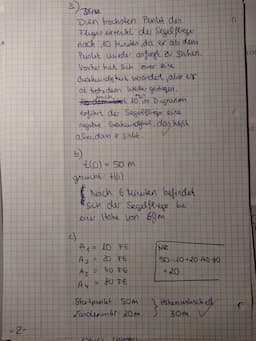 3)
Den höchsten Punkt des
Fluges erreicht der Segelflieger
nach 10 Minuten, da er ab dem
Punkt wieder anfängt zu sinken.
Vorher hat sich zwar die
Geschwindigkeit verändert, aber er
ist trotzdem weiter gestiegen.
10 im Diagramm
erfährt der Segelflieger eine
negative Geschwindigkeit, das heißt
also, dass er sinkt.
b)
f(0) = 50 m
gesucht: f(6)
Nach 6 Minuten befindet
sich der Segelflieger bei
einer Höhe von 60m.
c)
A₁ = 10 FE
A₂ = 20 FE
A₃ = 40 FE
A₄ = 80 FE
NR
= 20
Startpunkt 50m
Landepunkt 20m
Höhenunterschied
30m
-2-